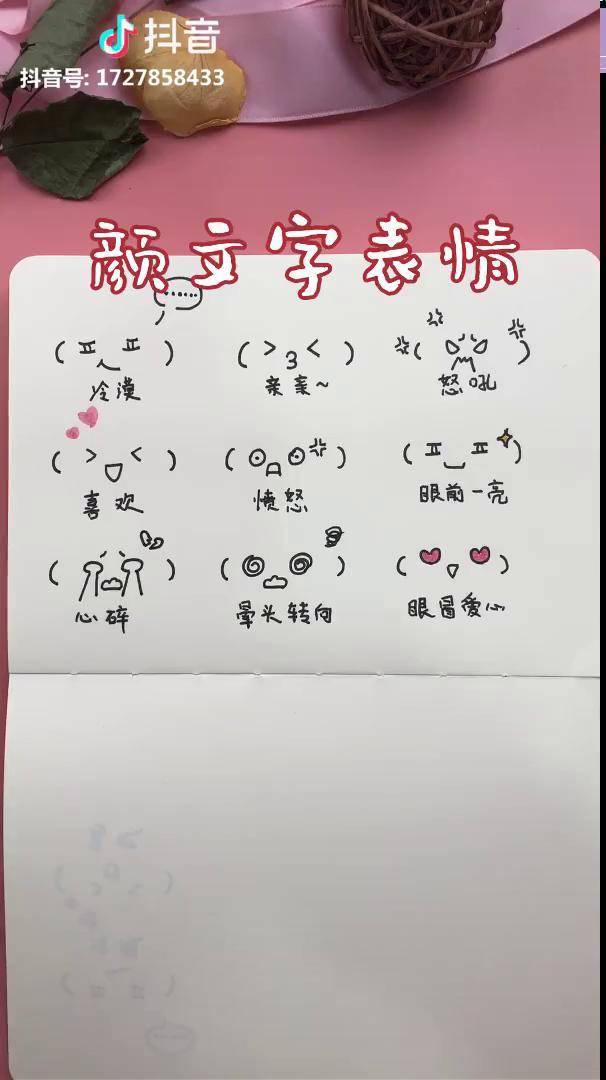 抖音
抖音号: 1727858433
颜文字表情
冷漠
亲亲~
怒吼
喜欢
愤怒
眼前一亮
心碎
晕头转向
眼冒爱心